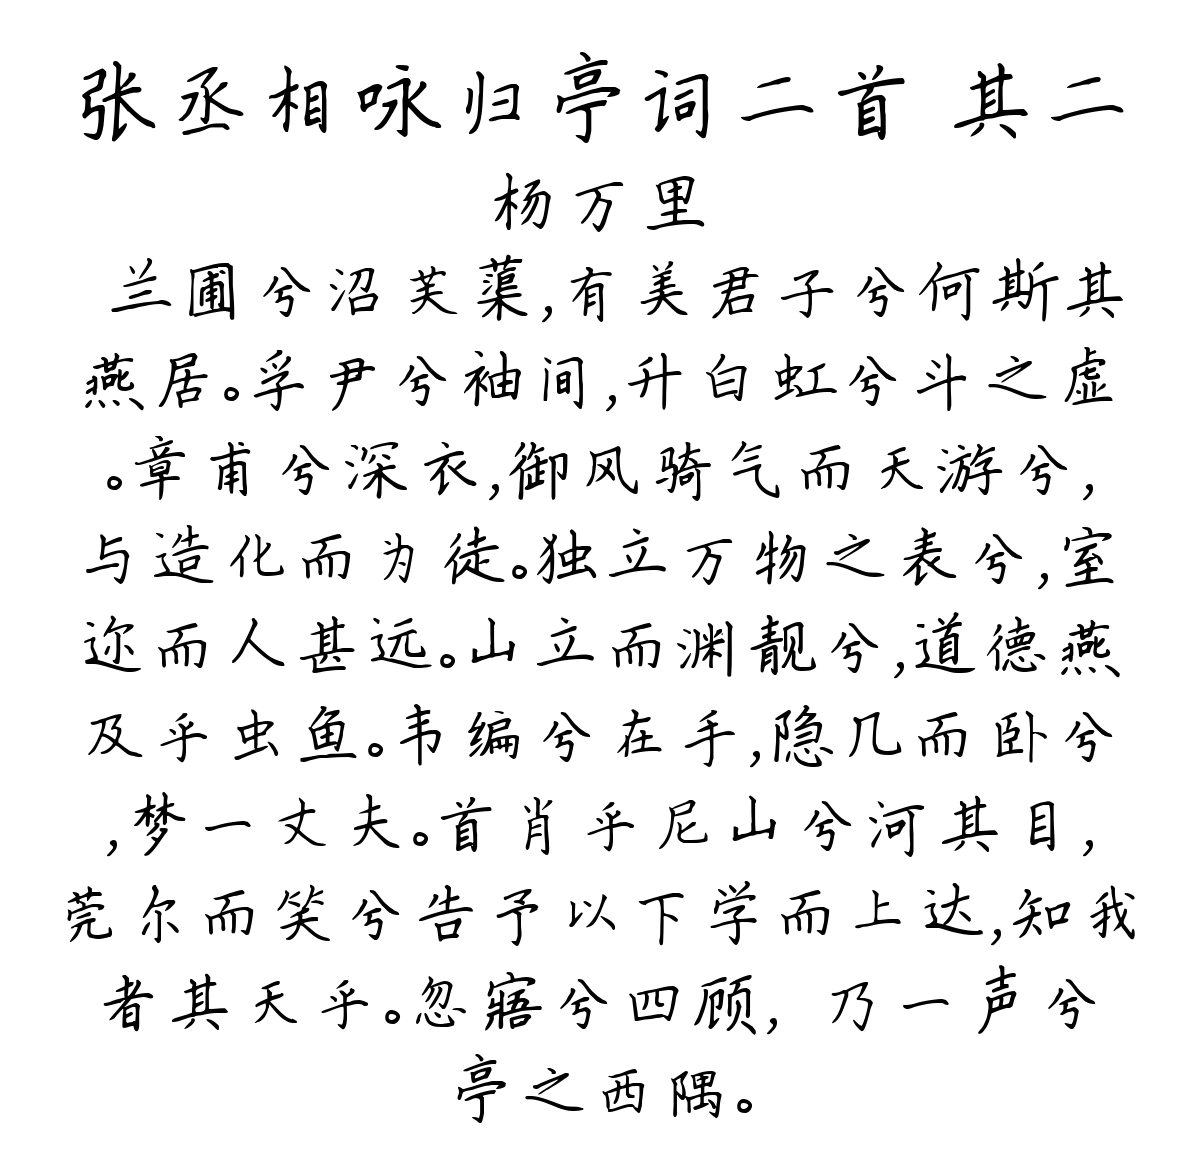 张丞相咏归亭词二首 其二
杨万里
兰圃兮沼芙蕖,有美君子兮何斯其
燕居。孚尹兮袖间,升白虹兮斗之虚
。章甫兮深衣,御风骑气而天游兮,
与造化而为徒。独立万物之表兮,室
迩而人甚远。山立而渊靓兮,道德燕
及乎虫鱼。韦编兮在手,隐几而卧兮
,梦一丈夫。首肖乎尼山兮河其目,
莞尔而笑兮告予以下学而上达,知我
者其天乎。忽寤兮四顾，乃一声兮
亭之西隅。